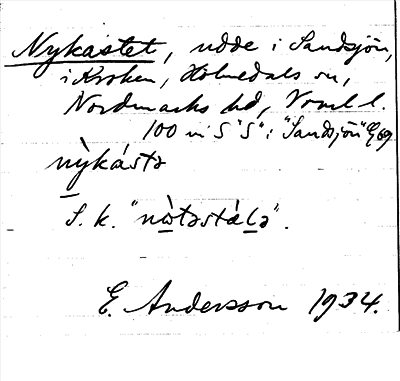 Nykastet, udde i Sandsjön,
i Kroken, Holmedals sn,
Nordmarks hd, Vrml l.
100 m S "S" i "Sandsjön" Eg 69
nỳkástə
S. k. "nòtəstàlə".
E. Andersson 1934.